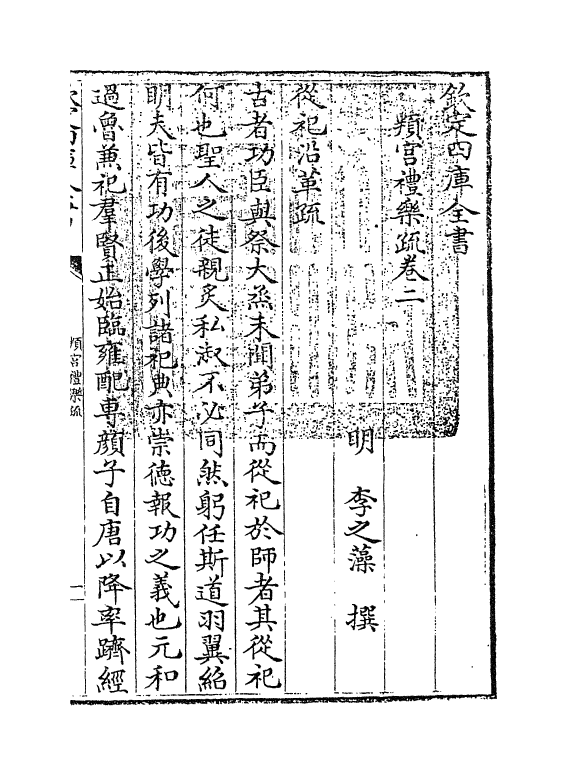 欽定四庫全書
頖宮禮樂疏卷二
明 李之藻 撰
從祀沿革疏
古者功臣與祭大烝未聞弟子而從祀於師者其從祀
何也聖人之徒親炙私淑不必同然躬任斯道羽翼紹
明夫皆有功後學列諸祀典亦崇德報功之義也元和
過魯兼祀羣賢正始臨雍配專顔子自唐以降率躋經
頖宮禮樂疏